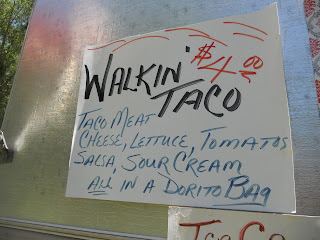 WALKIN' $4.00
TACO
TACO MEAT
CHEESE, LETTUCE, TOMATOS
SALSA, SOUR CREAM
ALL IN A DORITO BAG